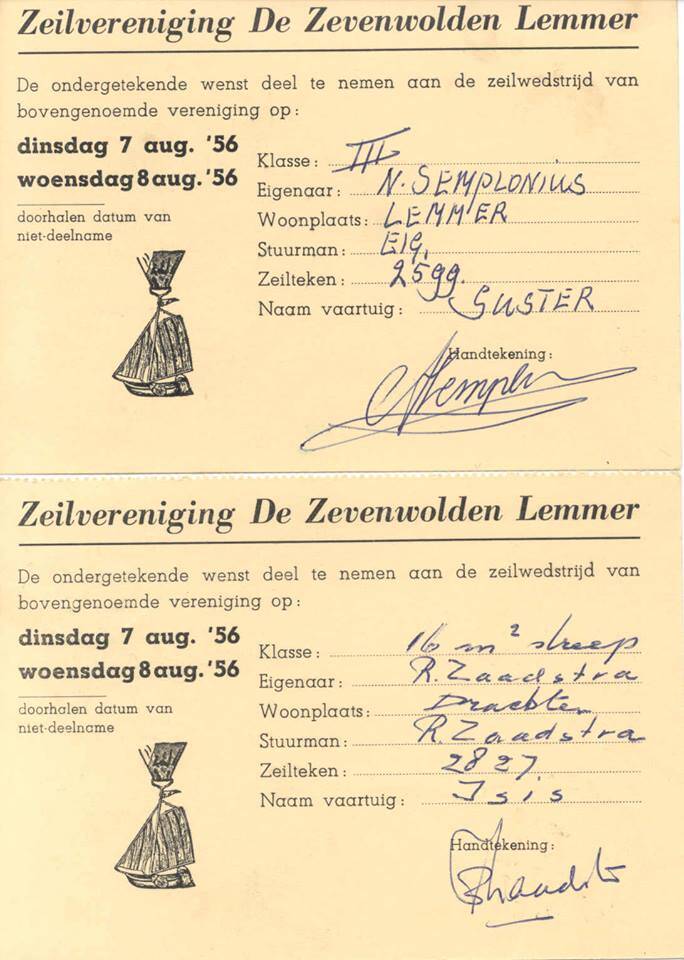 Zeilvereniging De Zevenwolden Lemmer
De ondergetekende wenst deel te nemen aan de zeilwedstrijd van
bovengenoemde vereniging op:
dinsdag 7 aug. '56
woensdag 8 aug. '56
doorhalen datum van
niet-deelname
Klasse: III
Eigenaar: N. SEMPLONIUS
Woonplaats: LEMMER
Stuurman: EIG.
Zeilteken: 2599.
Naam vaartuig: SUSTER
Handtekening:
Zeilvereniging De Zevenwolden Lemmer
De ondergetekende wenst deel te nemen aan de zeilwedstrijd van
bovengenoemde vereniging op:
dinsdag 7 aug. '56
woensdag 8 aug. '56
doorhalen datum van
niet-deelname
Klasse: 16 m² streep
Eigenaar: R. Zaadstra
Woonplaats: Drachten
Stuurman: R. Zaadstra
Zeilteken: 2827
Naam vaartuig: Isis
Handtekening: